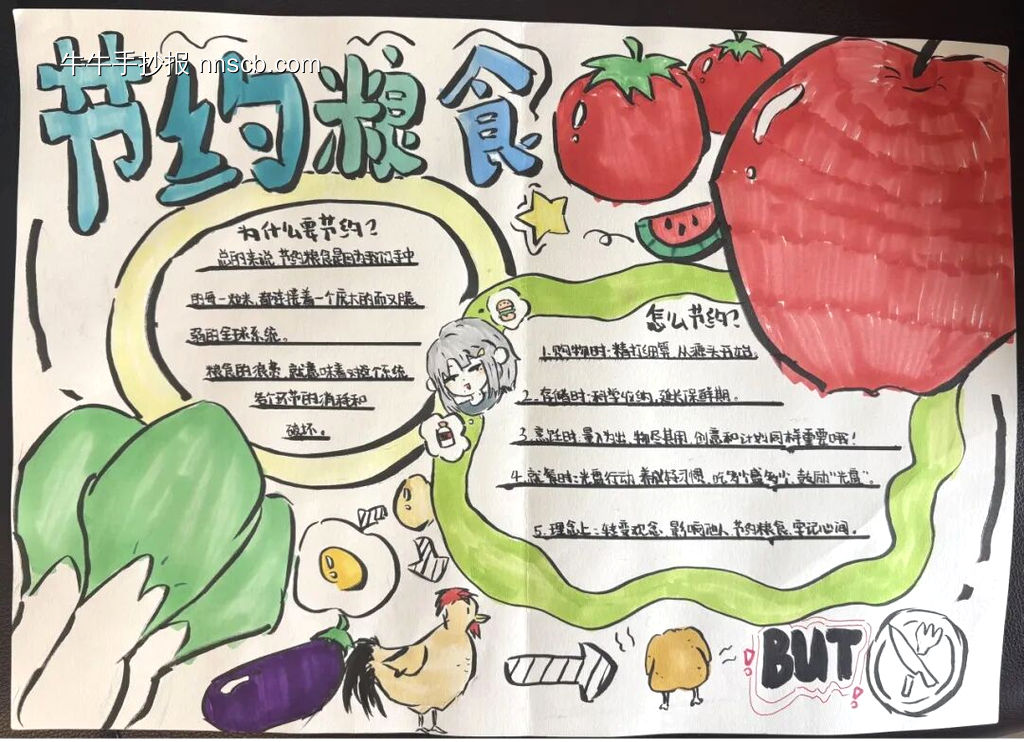 牛牛手抄报 nnscb.com
节约粮食
为什么要节约?
总的来说,节约粮食是因为我们手中
的每一粒米,都连接着一个庞大的而又脆
弱的全球系统。
粮食的浪费,就意味着对这个系统
各环节的消耗和
破坏。
怎么节约?
1.购物时:精打细算,从源头开始
2.存储时:科学收纳,延长保鲜期。
3.烹饪时:量入为出,物尽其用,创意和计划同样重要哦!
4.就餐时:光盘行动,养成好习惯,吃多少盛多少,鼓励"光盘"。
5.理念上:转变观念,影响他人,节约粮食,牢记心间。
BUT